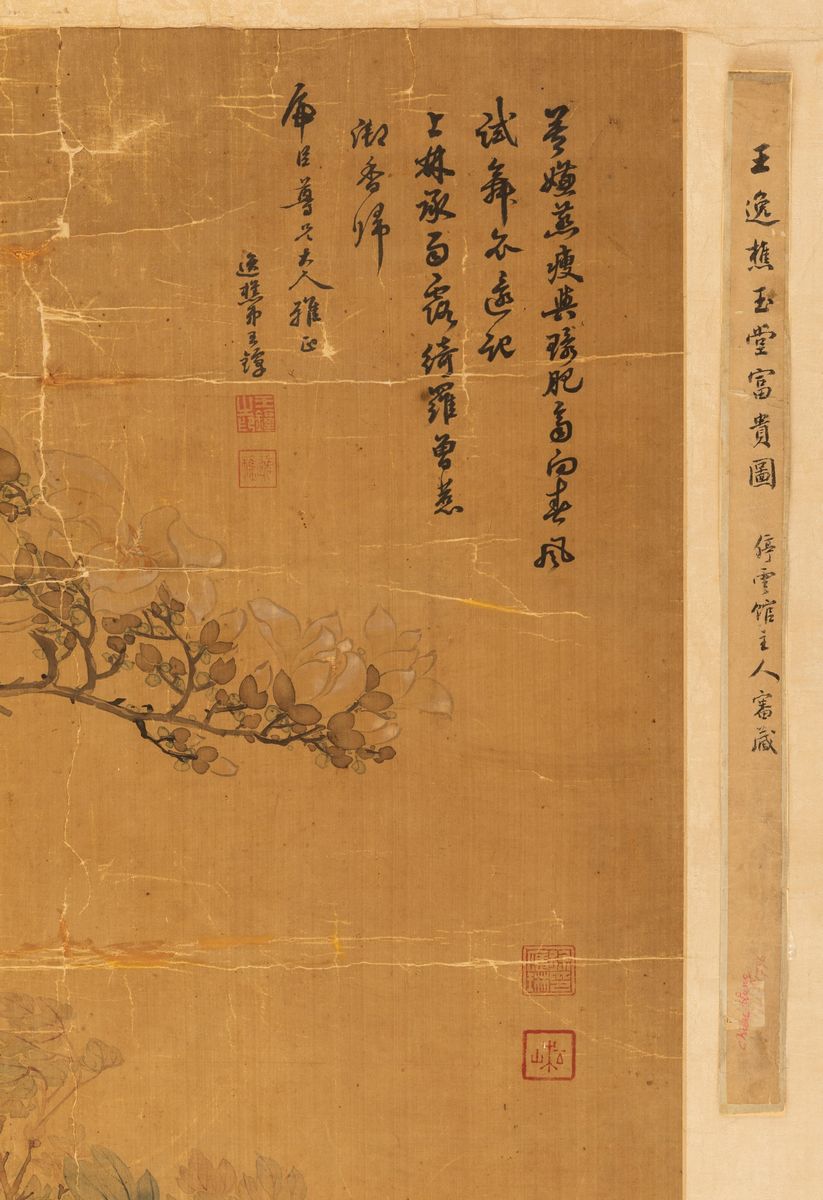 王逸樵玉堂富貴圖
停雲館主人審藏
嫌燕瘦與環肥齊向春風
試舞衣遙記
上林承雨露綺羅曾惹
御香歸
虎臣尊兄大人雅正
逸樵弟王
逸樵